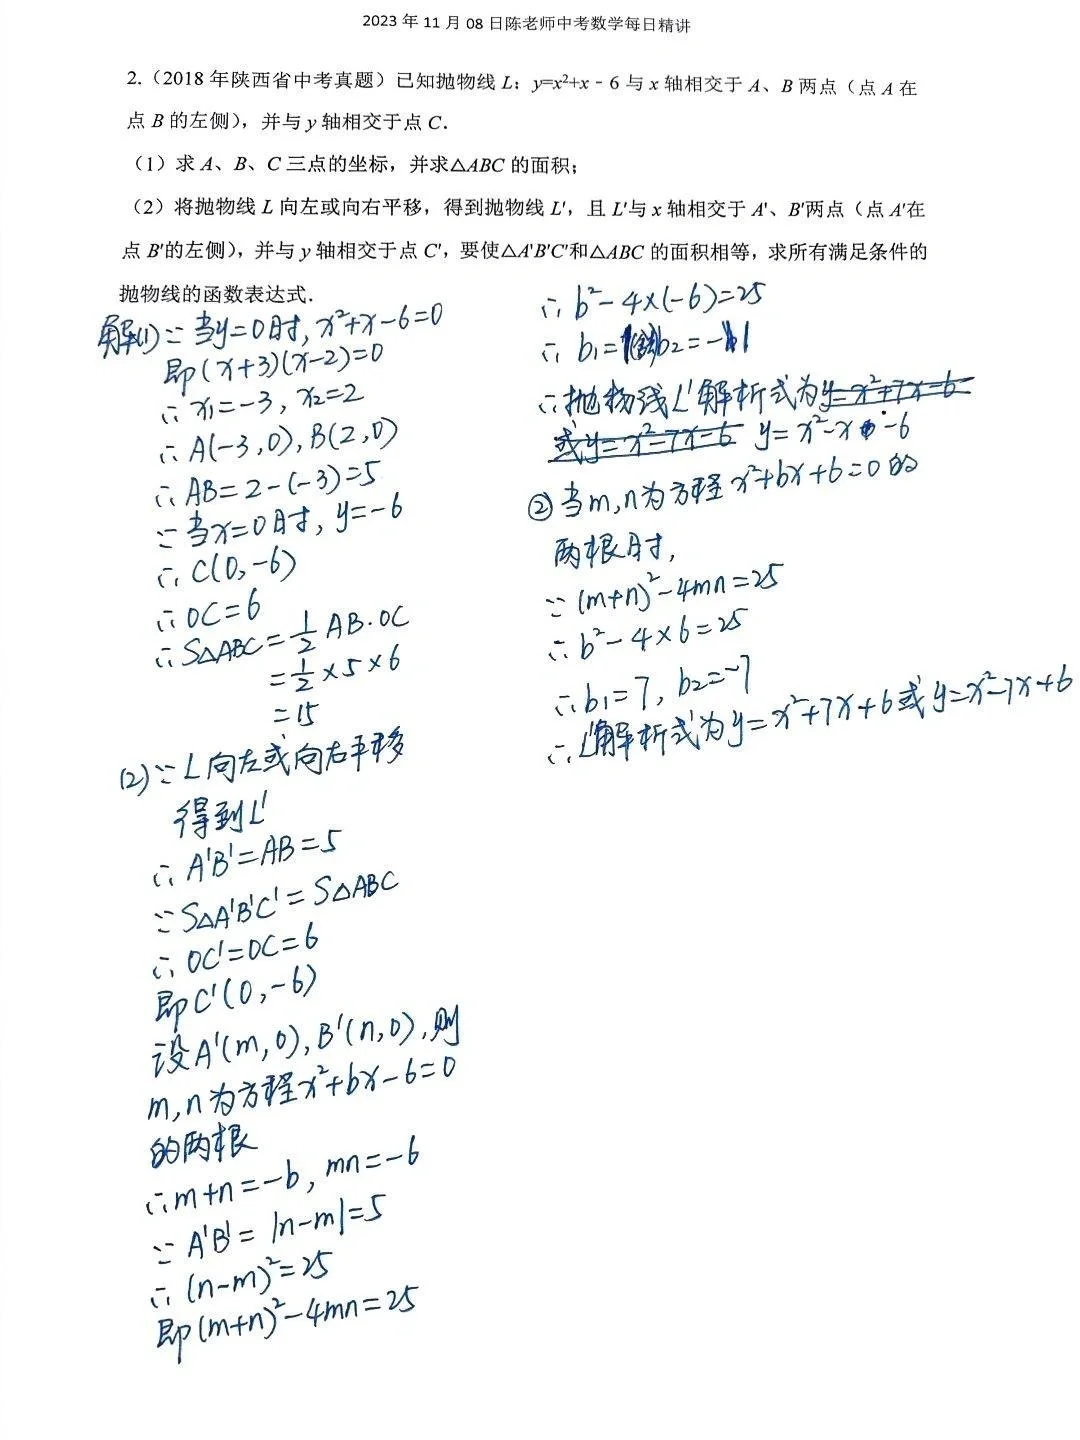 2023 年 11 月 08 日陈老师中考数学每日精讲
2.（2018 年陕西省中考真题）已知抛物线 L：y=x²+x﹣6 与 x 轴相交于 A、B 两点（点 A 在
点 B 的左侧），并与 y 轴相交于点 C．
（1）求 A、B、C 三点的坐标，并求△ABC 的面积；
（2）将抛物线 L 向左或向右平移，得到抛物线 L'，且 L'与 x 轴相交于 A'、B'两点（点 A'在
点 B'的左侧），并与 y 轴相交于点 C'，要使△A'B'C'和△ABC 的面积相等，求所有满足条件的
抛物线的函数表达式．
解(1)∵当y=0时, x²+x-6=0
即(x+3)(x-2)=0
∴x₁=-3, x₂=2
∴A(-3,0), B(2,0)
∴AB=2-(-3)=5
∵当x=0时, y=-6
∴C(0,-6)
∴OC=6
∴S△ABC=1/2 AB·OC
=1/2×5×6
=15
(2)∵L向左或向右平移
得到L'
∴A'B'=AB=5
∵S△A'B'C'=S△ABC
∴OC'=OC=6
即C'(0,-6)
设A'(m,0), B'(n,0),则
m,n为方程x²+bx-6=0
的两根
∴m+n=-b, mn=-6
∵A'B'=|n-m|=5
∴(n-m)²=25
即(m+n)²-4mn=25
∴b²-4×(-6)=25
∴b₁=1(舍)b₂=-1
∴抛物线L'解析式为y=x²+7x-6
或y=x²-7x-6 y=x²-x-6
②当m,n为方程x²+bx+6=0的
两根时,
∵(m+n)²-4mn=25
∴b²-4×6=25
∴b₁=7, b₂=-7
∴L'解析式为y=x²+7x+6或y=x²-7x+6